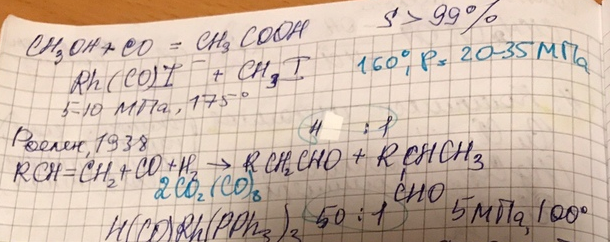 CH3OH + CO = CH3COOH S > 99%
Rh(CO)I⁻ + CH3I 160°, P= 20-35 МПа
5-10 МПа, 175°
Роелен, 1938 4 : 1
RCH=CH2 + CO + H2 → RCH2CHO + RCHCH3
2CO2(CO)8 CHO
H(CO)Rh(PPh3)3 50 : 1 5 МПа, 100°